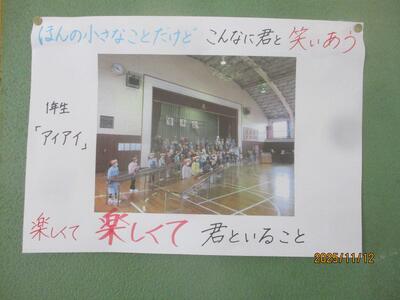 ほんの小さなことだけど こんなに君と笑いあう
1年生
「アイアイ」
楽しくて 楽しくて 君といること
2025/11/12